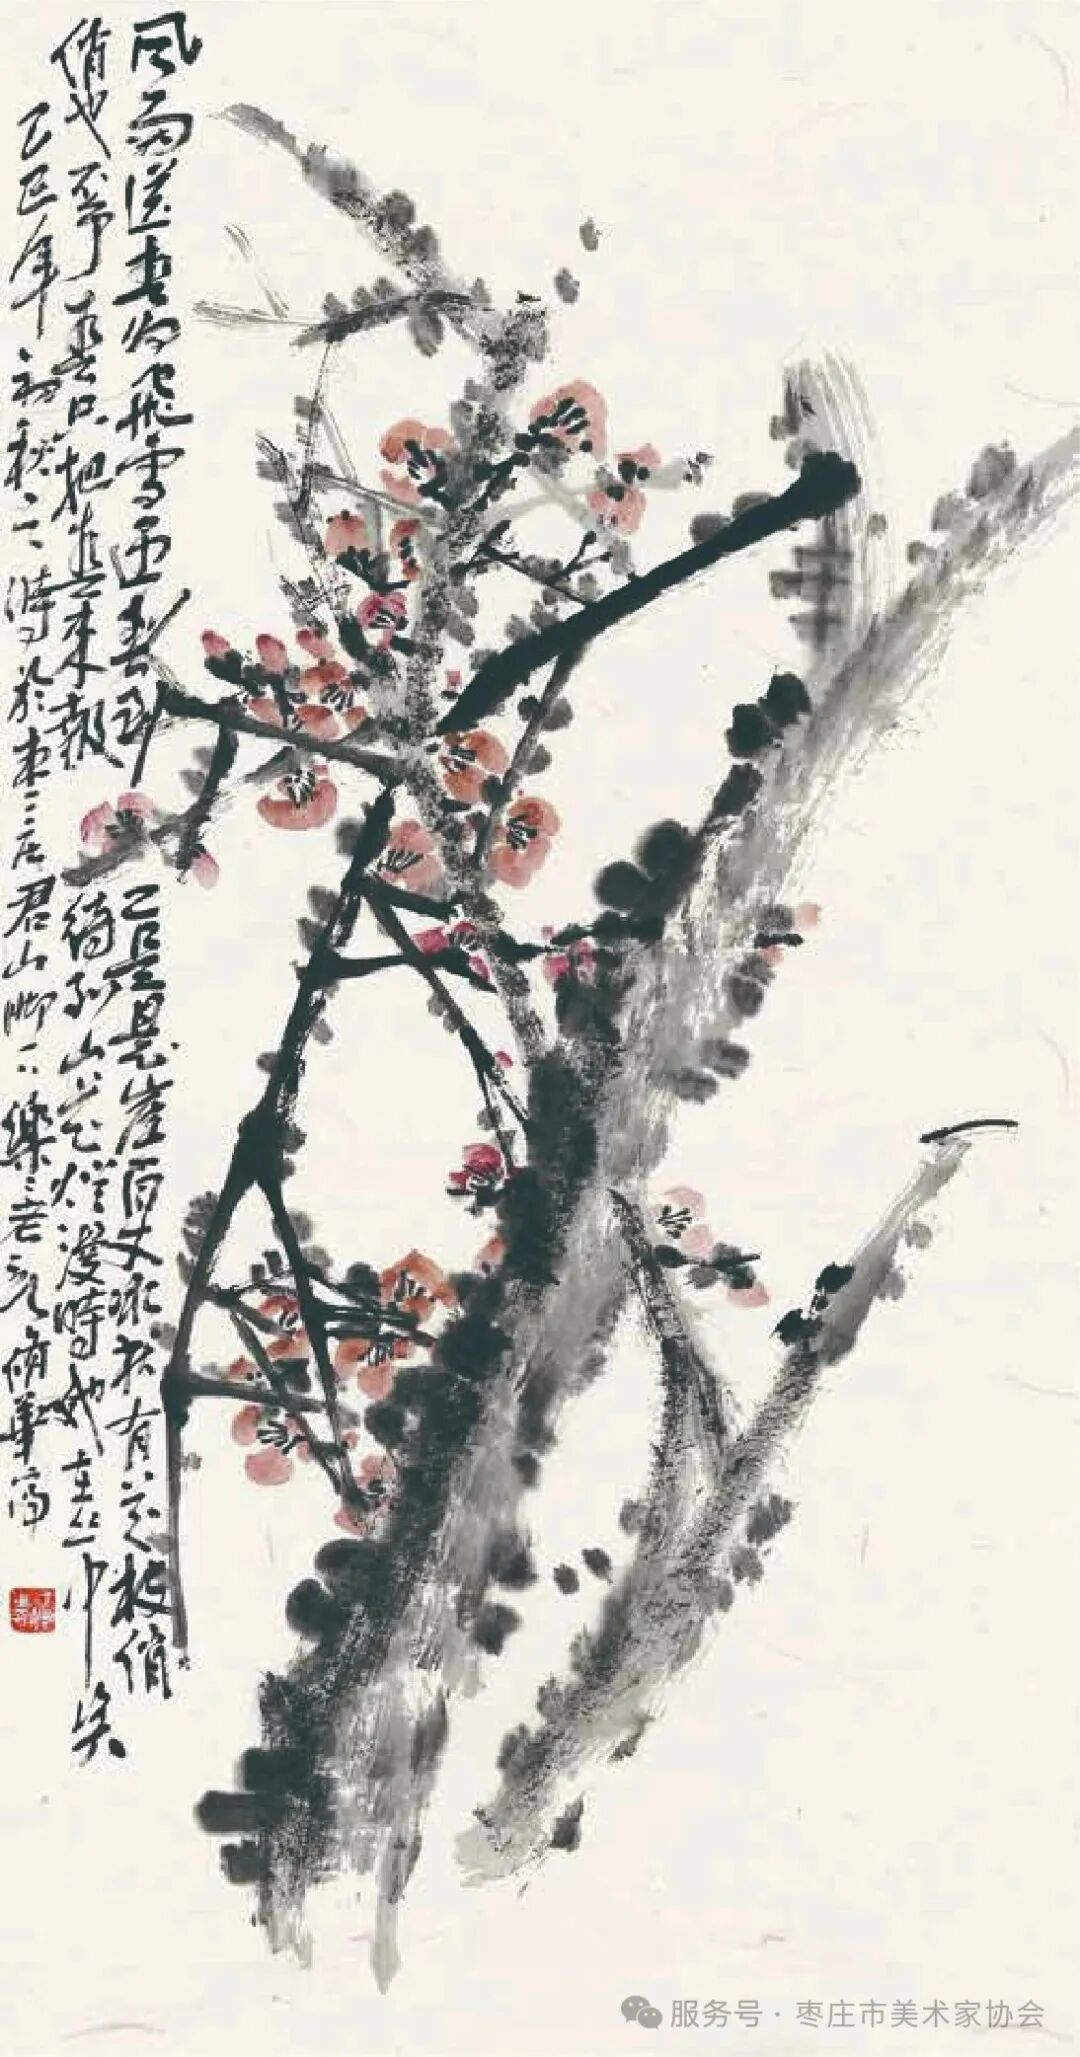 风雨送春归飛雪迎春到已是悬崖百丈冰犹有花枝俏
俏也不争春只把春来報待到山花烂漫時她在丛中笑
乙巳年初秋之時於枣庄君山脚下樂
服务号·枣庄市美术家协会